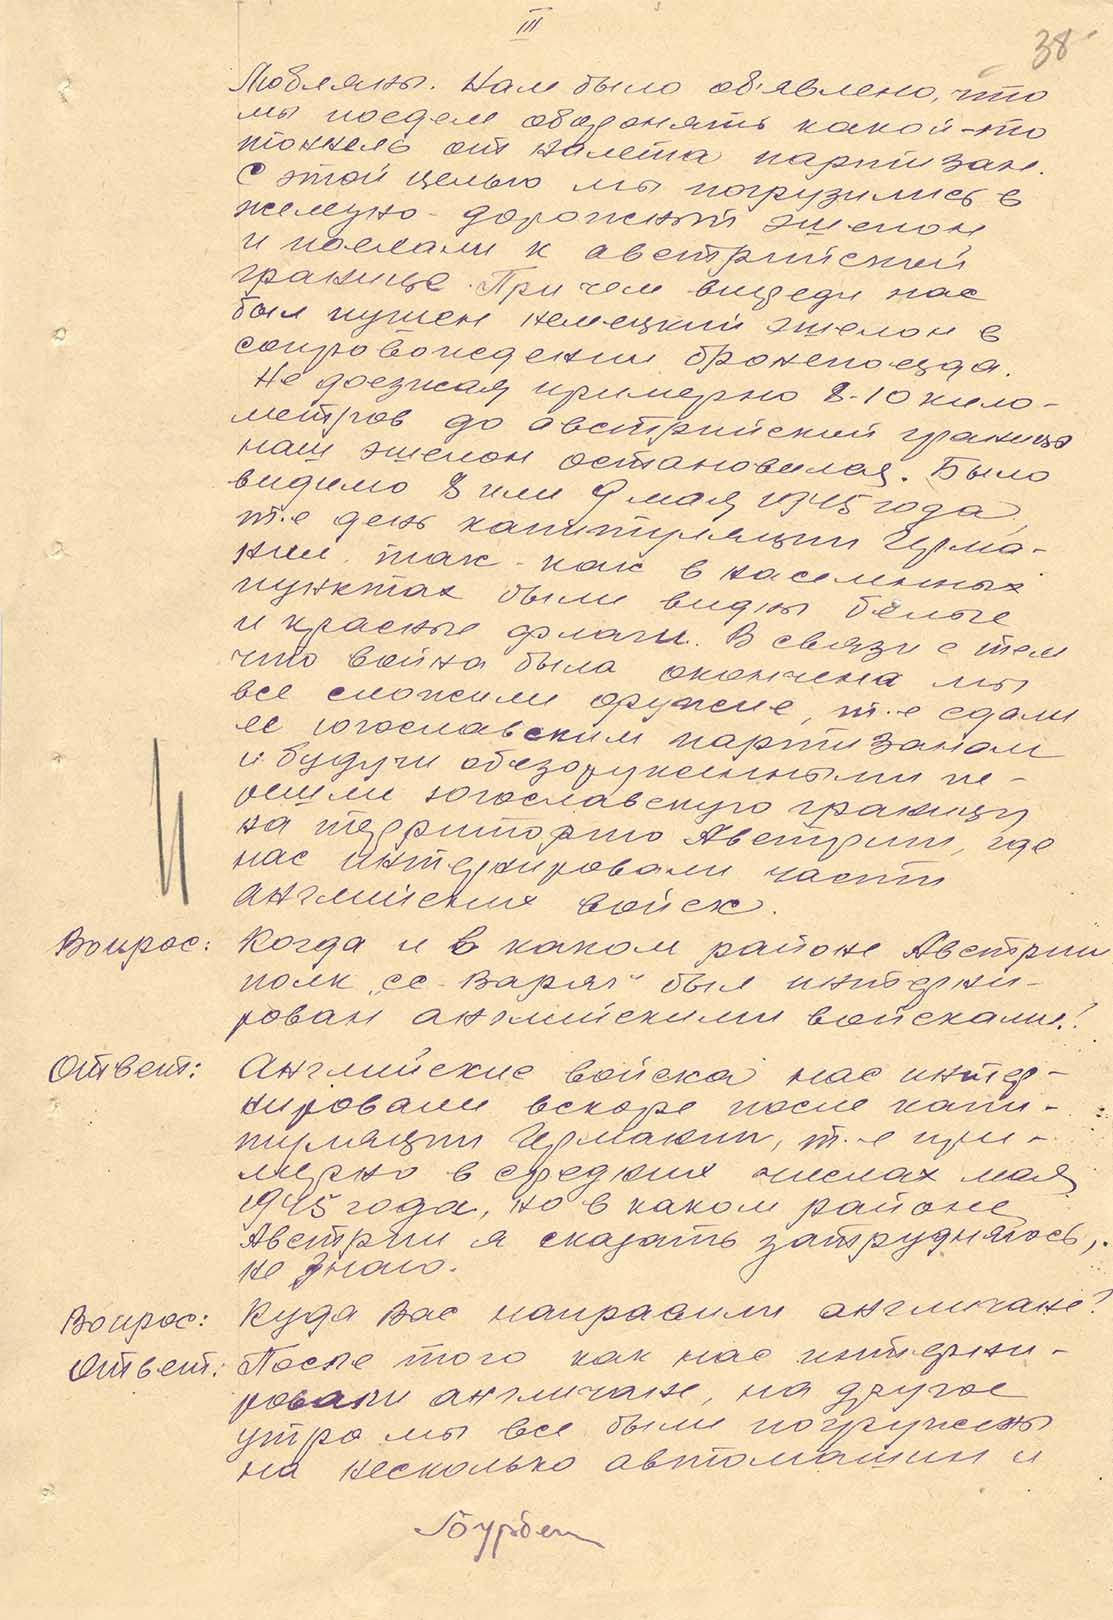 III
38
Любляны. Нам было об'явлено, что
мы поедем оборонять какой-то
тоннель от налета партизан.
С этой целью мы погрузились в
железно-дорожный эшелон
и поехали к австрийской
границе. Причем впереди нас
был пущен немецкий эшелон в
сопровождении бронепоезда.
Не доезжая примерно 8-10 кило-
метров до австрийской границы
наш эшелон остановился. Было
видимо 8 или 9 мая 1945 года,
т.е день капитуляции Герма-
нии, так-как в населенных
пунктах были видны белые
и красные флаги. В связи с тем
что война была окончена мы
все сложили оружие, т.е сдали
ее югославским партизанам
и будучи обезоруженными пе-
решли югославскую границу
на территорию Австрии, где
нас интернировали части
английских войск.
Вопрос: Когда и в каком районе Австрии
полк „сс-Варяг" был интерни-
рован английскими войсками?
Ответ: Английские войска нас интер-
нировали вскоре после капи-
туляции Германии, т.е при-
мерно в средних числах мая
1945 года, но в каком районе
Австрии я сказать затрудняюсь,
не знаю.
Вопрос: Куда Вас направили англичане?
Ответ: После того как нас интерни-
ровали англичане, на другое
утро мы все были погружены
на несколько автомашин и